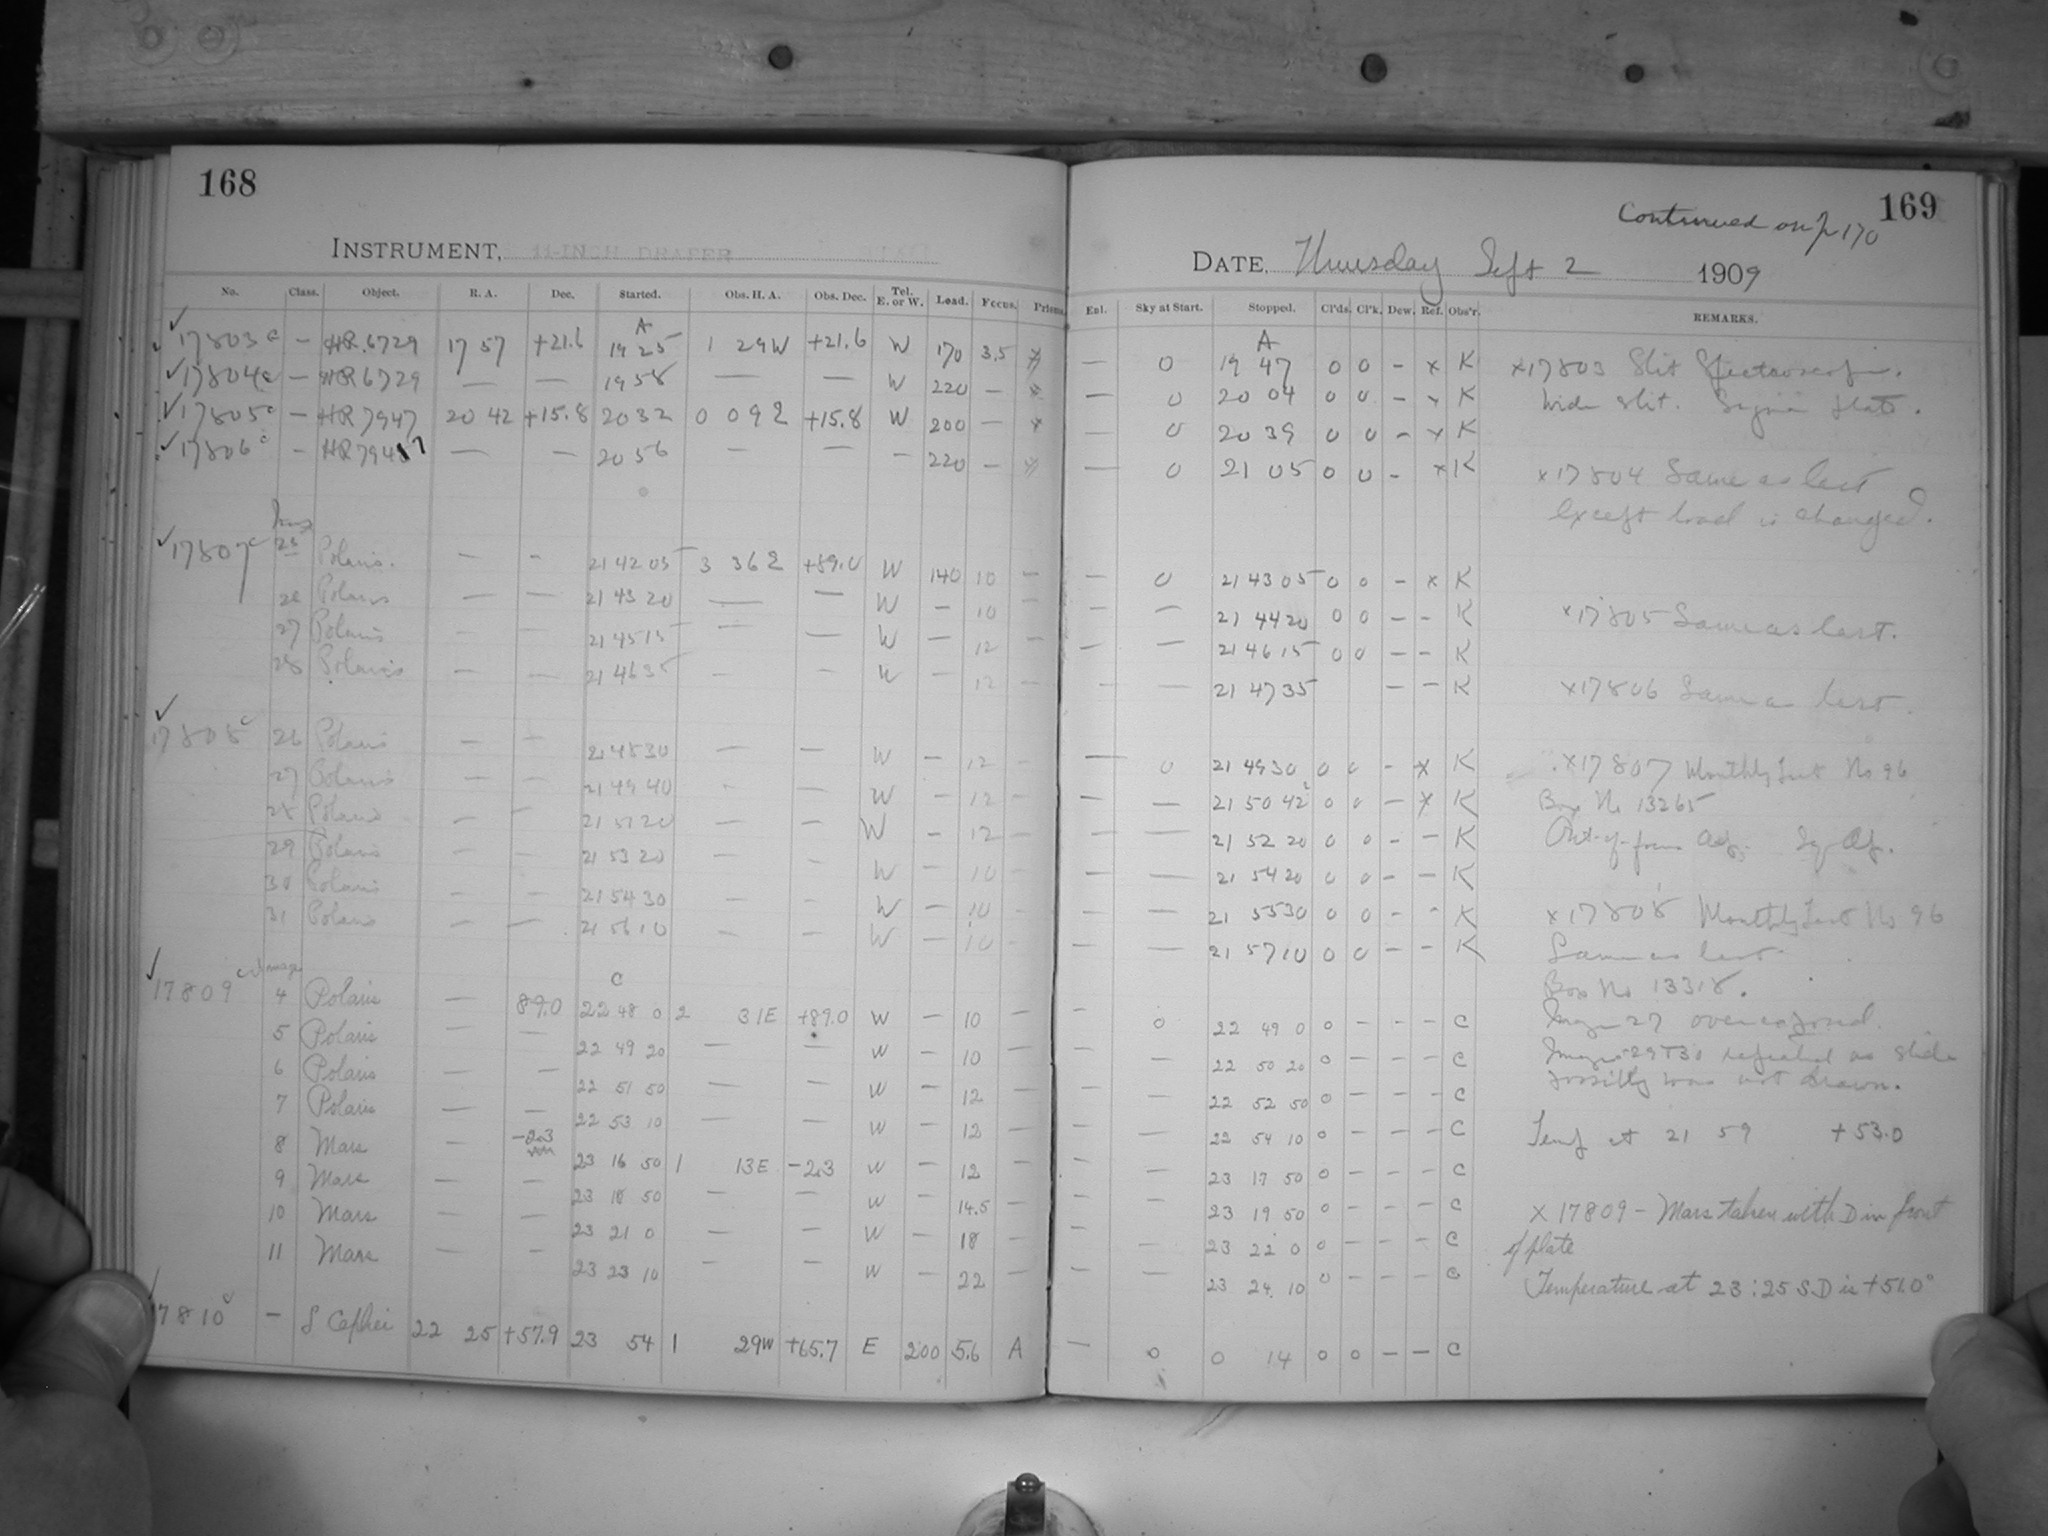 168
INSTRUMENT, 11-INCH DRAPER
No. Class. Object. R. A. Dec. Started. Obs. H. A. Obs. Dec. Tel. E. or W. Load. Focus. Prisms
A
17803 c – HR.6729 17 57 +21.6 19 25 1 29W +21.6 W 170 3.5
17804 c – HR 6729 — — 19 58 — — W 220 –
17805 c – HR 7947 20 42 +15.8 20 32 0 09 E +15.8 W 200 –
17806 c – HR 7947 — — 20 56 – — – 220 –
17807 c 25 Polaris. – - 21 42 05 3 36 E +89.0 W 140 10 –
26 Polaris — — 21 43 20 — — W – 10
27 Polaris – – 21 45 15 — — W – 12 –
28 Polaris – – 21 46 35 – – W – 12 –
17808 26 Polaris – – 21 48 30 — – W – 12 –
27 Polaris – – 21 49 40 – – W – 12 –
28 Polaris – – 21 51 20 — — W – 12 –
29 Polaris – – 21 53 20 – – W – 10 –
30 Polaris – – 21 54 30 – – W – 10 –
31 Polaris – — 21 56 10 – – W – 10 –
Image C
17809 4 Polaris — 89.0 22 48 0 2 31E +89.0 W – 10 –
5 Polaris — — 22 49 20 — — W – 10 —
6 Polaris — — 22 51 50 — — W – 12 –
7 Polaris — – 22 53 10 – – W – 12 –
8 Mars – -2.3 23 16 50 1 13E -2.3 W – 12 –
9 Mars — – 23 18 50 – – W – 14.5 –
10 Mars — – 23 21 0 – – W – 18 –
11 Mars — – 23 23 10 – – W – 22 –
17810 – δ Cephei 22 25 +57.9 23 54 1 29W +65.7 E 200 5.6 A
169
Continued on p 170
DATE, Thursday Sept 2 1909
Enl. Sky at Start. Stopped. Cl'ds. Cl'k. Dew. Ref. Obs'r. REMARKS.
A
— 0 19 47 0 0 – x K x17803 Slit Spectroscope.
— 0 20 04 0 0 – x K Wide slit. Plate.
— 0 20 39 0 0 – x K
— 0 21 05 0 0 - x K x17804 Same as last
except load is changed.
— 0 21 43 05 0 0 – x K
— — 21 44 20 0 0 – – K x17805 Same as last.
— — 21 46 15 0 0 – – K
— — 21 47 35 – – K x17806 Same as last.
— 0 21 49 30 0 0 – x K x17807 Monthly Test No 96
— — 21 50 42 0 0 – x K Box No 13265
— — 21 52 20 0 0 – – K Out-of-focus
— — 21 54 20 0 0 – – K
— — 21 55 30 0 0 – – K x17808 Monthly Test No 96
— — 21 57 10 0 0 – – K Same as last
Box No 13318.
– 0 22 49 0 0 – – – C Image 27 overexposed.
– – 22 50 20 0 – – – C Images 29+30 repeated as slide
possibly was not drawn.
– – 22 52 50 0 – – – C
– – 22 54 10 0 – – – C Temp at 21 59 +53.0
– – 23 17 50 0 – – – C
– – 23 19 50 0 – – – C X 17809 – Mars taken with D in front
– – 23 22 0 0 – – – C of plate
– – 23 24 10 0 – – – C Temperature at 23:25 S.D is +51.0°
— 0 0 14 0 0 – – C